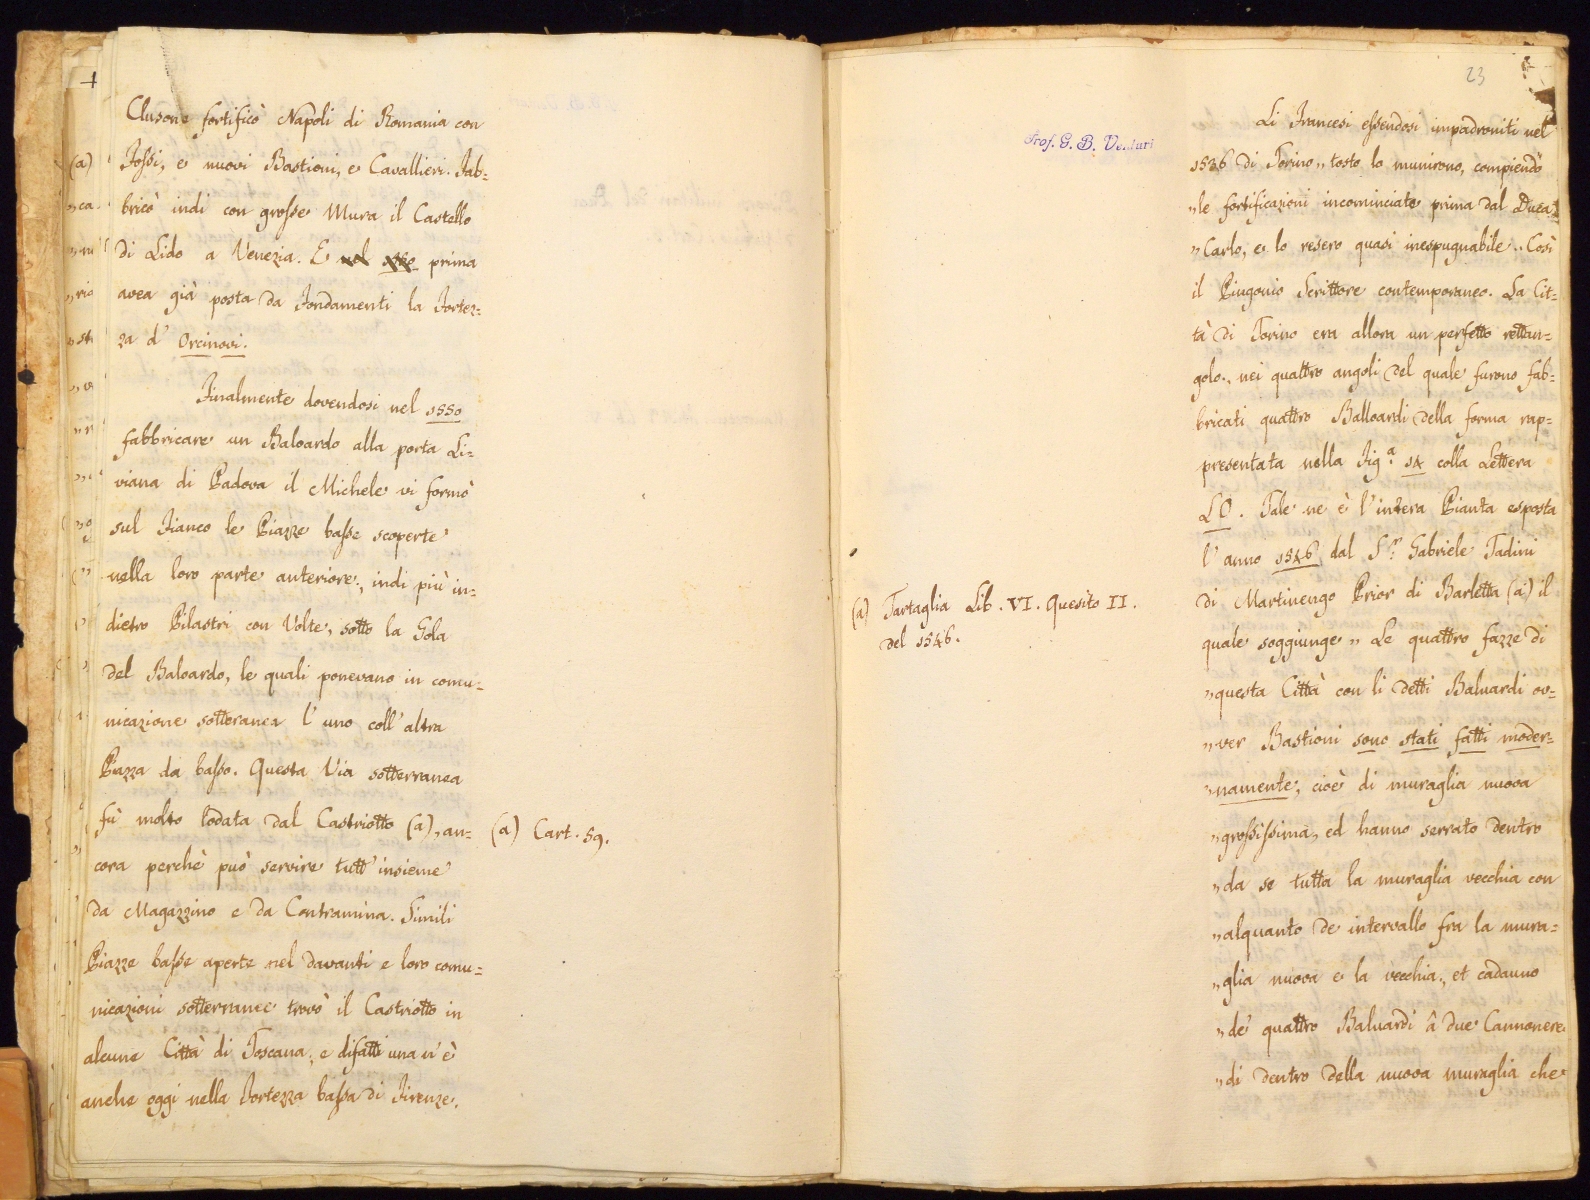 Clusone fortificò Napoli di Romania con
Fossi, e nuovi Bastioni, e Cavallieri. Fab=
bricò indi con grosse Mura il Castello
di Lido a Venezia. E nel 1550 prima
avea già posta da Fondamenti la Fortez=
za d' Orcinovi.
Finalmente dovendosi nel 1550
fabbricare un Baloardo alla porta Li=
viana di Padova il Michele vi formò
sul Fianco le Piazze basse scoperte
nella loro parte anteriore, indi più in=
dietro Pilastri con Volte, sotto la Gola
del Baloardo, le quali ponevano in comu=
nicazione sotteranea l' uno coll' altra
Piazza da basso. Questa Via sotterranea
fù molto lodata dal Castriotto (a), an=
cora perchè può servire tutt' insieme
da Magazzino e da Contramina. Simili
Piazze basse aperte nel davanti e loro comu=
nicazioni sotterranee trovò il Castriotto in
alcune Città di Toscana; e difatti una n' è
anche oggi nella Fortezza bassa di Firenze.
(a) Cart. 59.
23
Prof. G. B. Venturi
Li Francesi essendosi impadroniti nel
1536 di Torino „ tosto lo munirono, compiendo
„ le fortificazioni incominciate prima dal Duca
„ Carlo, e lo resero quasi inespugnabile „ Così
il Pingonio Scrittore contemporaneo. La Cit=
tà di Torino era allora un perfetto rettan=
golo, nei quattro angoli del quale furono fab=
bricati quattro Balloardi della forma rap=
presentata nella Fig.a 14 colla Lettera
LO. Tale ne è l' intera Pianta esposta
l' anno 1546 dal S.r Gabriele Tadini
di Martinengo Prior di Barletta (a) il
quale soggiunge „ Le quattro fazze di
„ questa Città con li detti Baluardi ov=
„ ver Bastioni sono stati fatti moder=
„ namente, cioè di muraglia nuova
„ grossissima, ed hanno serrato dentro
„ da se tutta la muraglia vecchia con
„ alquanto de intervallo fra la mura=
„ glia nuova e la vecchia, et cadauno
„ de' quattro Baluardi â due Cannonere
„ di dentro della nuova muraglia che
(a) Tartaglia Lib. VI. Quesito II.
del 1546.